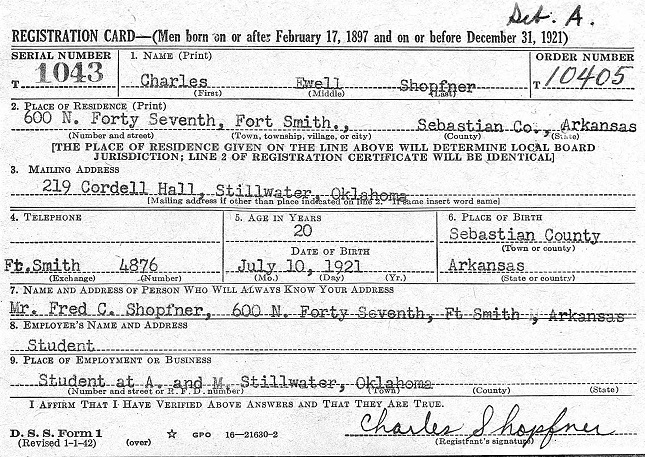 Det. A.
REGISTRATION CARD—(Men born on or after February 17, 1897 and on or before December 31, 1921)
SERIAL NUMBER 1. NAME (Print) ORDER NUMBER
T 1043 Charles Ewell Shopfner T 10405
(First) (Middle) (Last)
2. PLACE OF RESIDENCE (Print)
600 N. Forty Seventh, Fort Smith., Sebastian Co., Arkansas
(Number and street) (Town, township, village, or city) (County) (State)
[THE PLACE OF RESIDENCE GIVEN ON THE LINE ABOVE WILL DETERMINE LOCAL BOARD
JURISDICTION; LINE 2 OF REGISTRATION CERTIFICATE WILL BE IDENTICAL]
3. MAILING ADDRESS
219 Cordell Hall, Stillwater, Oklahoma
[Mailing address if other than place indicated on line 2. If same insert word same]
4. TELEPHONE 5. AGE IN YEARS 6. PLACE OF BIRTH
20 Sebastian County
DATE OF BIRTH (Town or county)
Ft.Smith 4876 July 10, 1921 Arkansas
(Exchange) (Number) (Mo.) (Day) (Yr.) (State or country)
7. NAME AND ADDRESS OF PERSON WHO WILL ALWAYS KNOW YOUR ADDRESS
Mr. Fred C. Shopfner, 600 N. Forty Seventh, Ft Smith, Arkansas
8. EMPLOYER'S NAME AND ADDRESS
Student
9. PLACE OF EMPLOYMENT OR BUSINESS
Student at A. and M. Stillwater, Oklahoma
(Number and street or R. F. D. number) (Town) (County) (State)
I AFFIRM THAT I HAVE VERIFIED ABOVE ANSWERS AND THAT THEY ARE TRUE.
D. S. S. Form 1 Charles Shopfner
(Revised 1-1-42) (over) ☆ GPO 16—21630-2 (Registrant's signature)